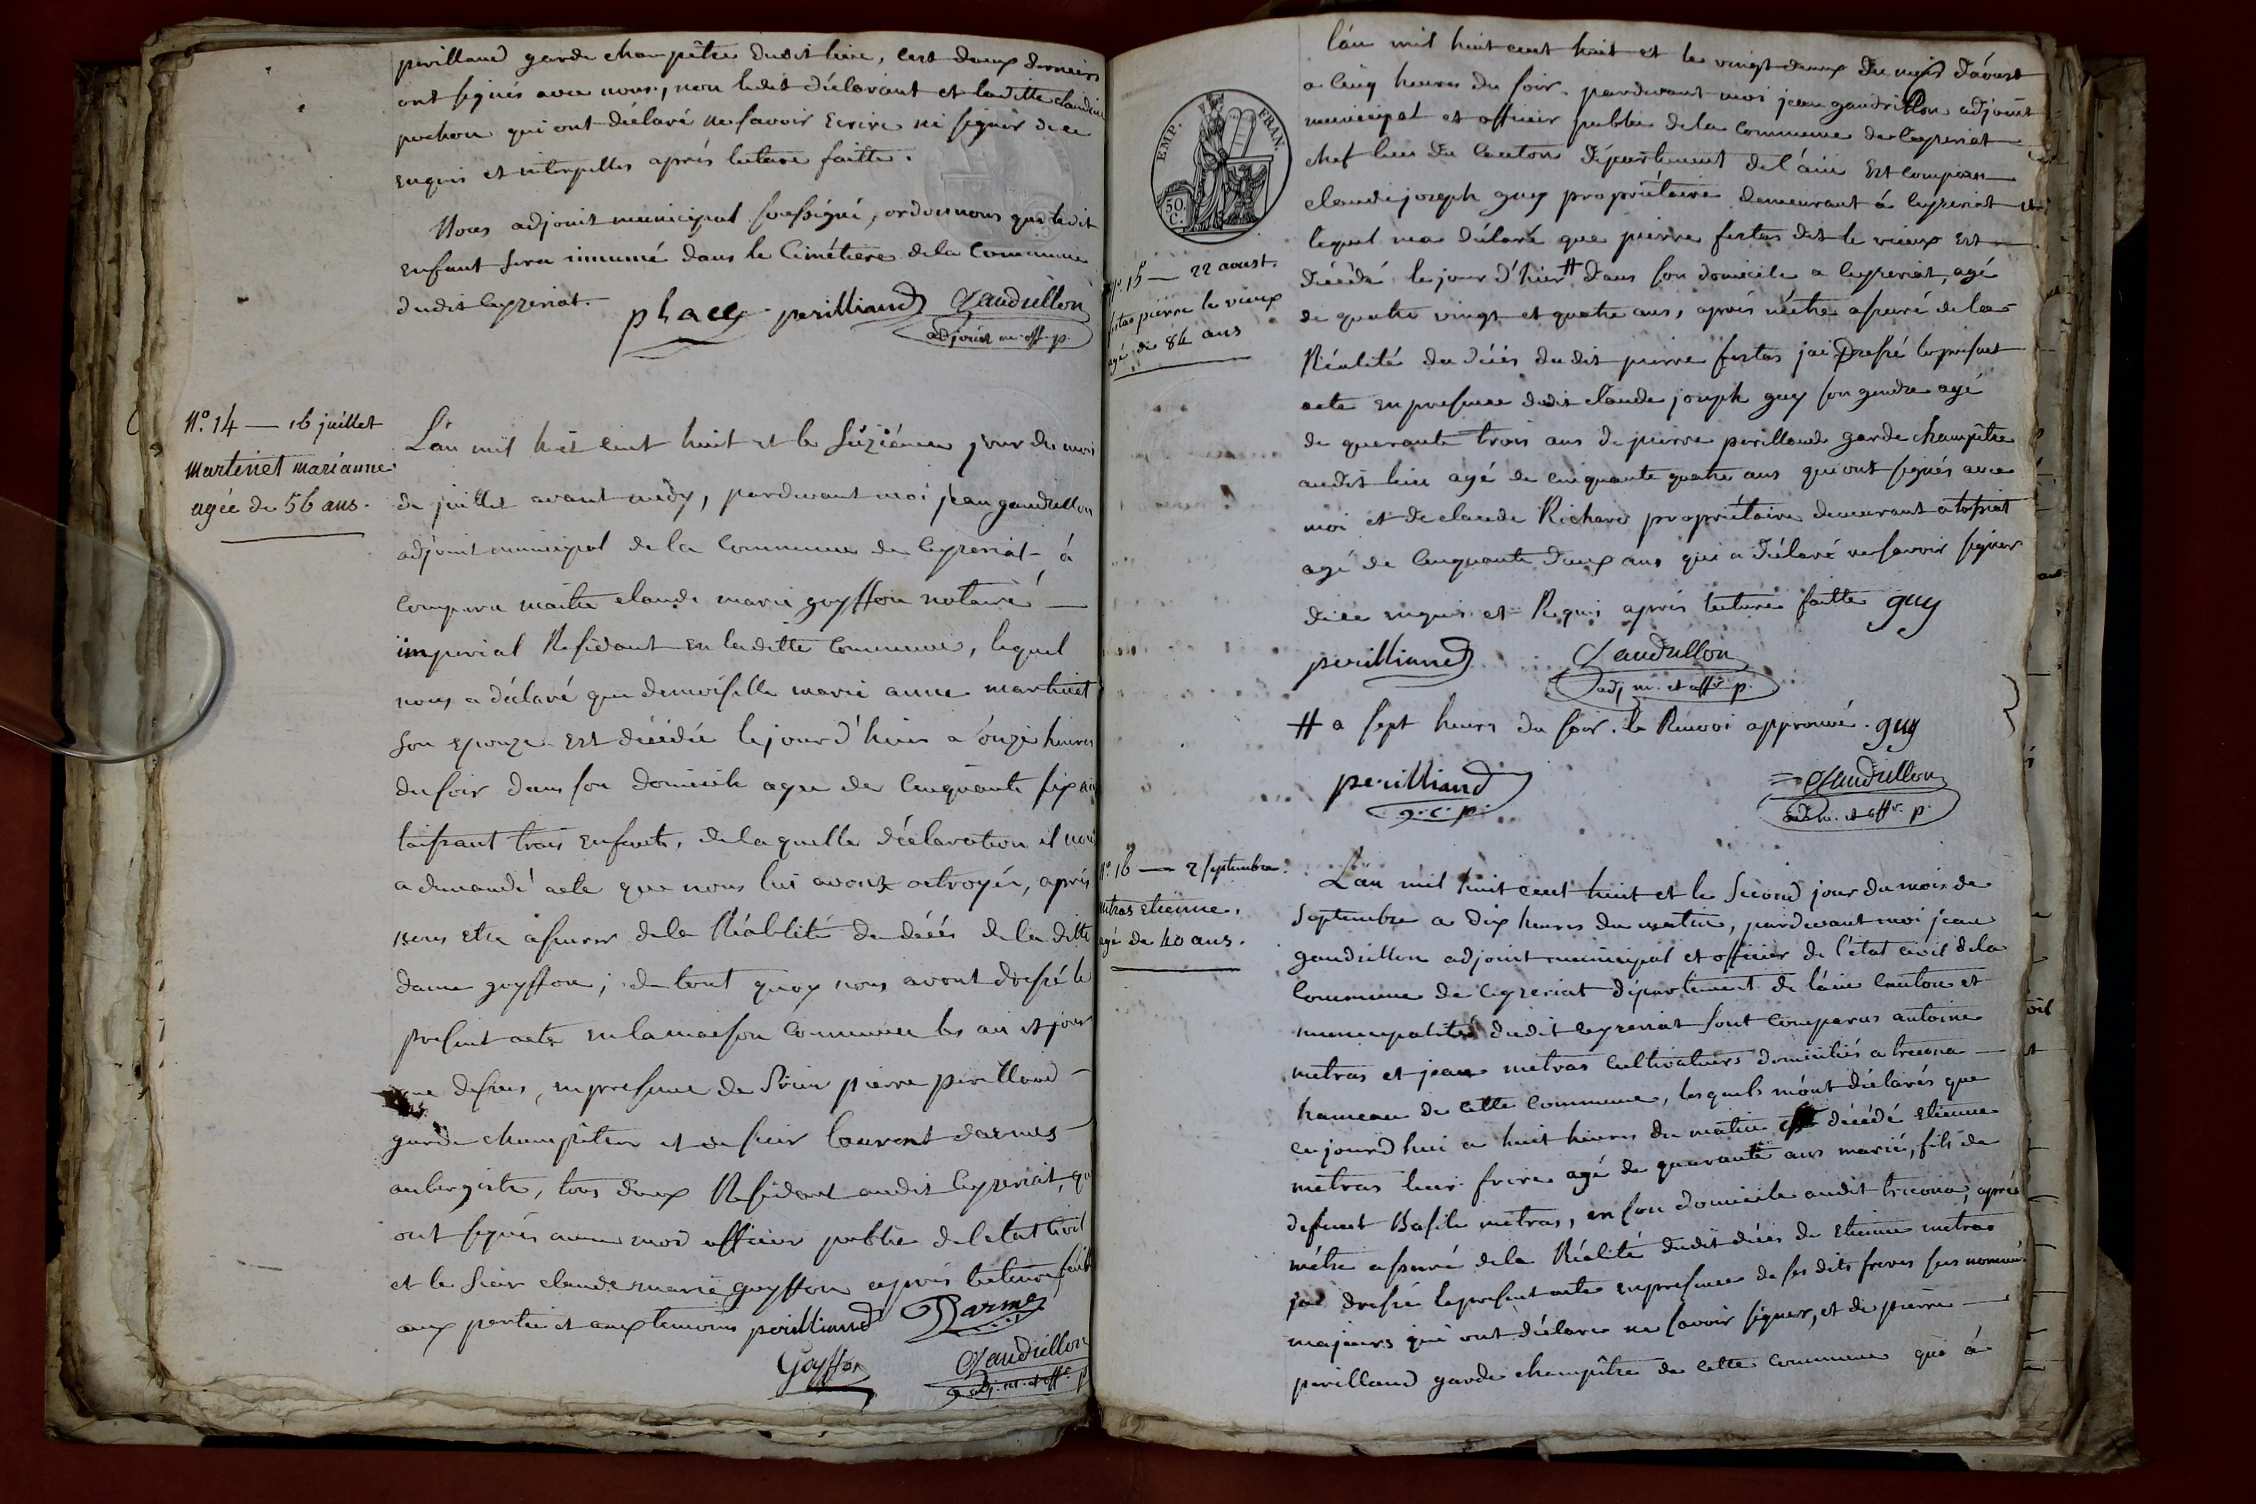 perilland garde champêtre dudit lieu, ces deux derniers
ont signés avec nous, non ledit déclarant et laditte claudine
pochon qui ont déclaré ne savoir Ecrire ni signer de ce
enquis et interpellés après lecture faitte.
Nous adjoint municipal soussigné, ordonnons que ledit
enfant sera innumé dans le Cimétiere de la Commune
dudit Ceyzeriat.
place perilliand Gaudrillon
adjoint m. off. p.
N.º 14 — 16 juillet
Martinet marianne
agée de 56 ans.
L'an mil huit cent huit et le Séziéme jour du mois
de juillet avant midy, pardevant moi jean gaudrillon
adjoint municipal de la Commune de Ceyzeriat, á
Comparu maitre claude marie goyffon notaire
imperial Résidant en laditte Commune, lequel
nous a déclaré que demoiselle marie anne martinet
son epouze est décédée le jour d'hier a onze heures
du soir dans son domicile agée de Cinquante six ans
laissant trois enfants, de laquelle déclaration il nous
a demandé acte que nous lui avons octroyée, après
nous etre assurer de la Réablité du décés de la ditte
dame goyffon; de tout quoy nous avont dressé le
présent acte en la maison Commune les an et jour
que dessus, en presence de Sieur pierre perilland
garde champêtre et de sieur laurent darmes
aubergiste, tous deux Résidant audit Ceyzeriat, qui
ont signés avec moi officier public de l'etat civil
et le Sieur claude marie goyffon après lecture faitte
aux parties et aux temoins perilliand Darmes
Goyffon Gaudrillon
adj. m. et off.r p.
EMP. FRAN.
50. C.
N.º 15 — 22 aoust.
fertas pierre le vieux
agé de 84 ans
l'an mil huit cent huit et le vingt deux du mois d'aoust
a Cinq heures du soir, pardevant moi jean gaudrillon adjoint
municipal et officier public de la Commune de Ceyzeriat
chef lieu du Canton département de l'ain Est comparu
claude joseph guy propriétaire demeurant á Ceyzeriat
lequel m'a déclaré que pierre fertas dit le vieux est
décédé le jour d'hier # dans son domicile a Ceyzeriat, agé
de quatre vingt et quatre ans, après m'être assuré de la
Réalité du décés dudit pierre fertas jai dressé le présent
acte en presence dudit claude joseph guy son gendre agé
de quarante trois ans de pierre perilland garde champêtre
audit lieu agé de cinquante quatre ans qui ont signés avec
moi et de claude Richard propriétaire demeurant a tossiat
agé de Cinquante deux ans qui a déclaré ne savoir signer
de ce enquis et Réquis après lecture faitte guy
perilliand Gaudrillon
adj. m. et off.r p.
# a sept heures du soir. le Renvoi approuvé. guy
perilliand Gaudrillon
g. c. p. adj. m. et off.r p.
N.º 16 — 2 septembre.
metras etienne.
agé de 40 ans.
L'an mil huit cent huit et le Second jour du mois de
Septembre a dix heures du matin, pardevant moi jean
gaudrillon adjoint municipal et officier de l'état civil de la
Commune de Ceyzeriat département de l'ain Canton et
municipalité dudit Ceyzeriat sont comparus antoine
metras et jean metras Cultivateurs domiciliés a treconas
hameau de cette Commune, lesquels m'ont déclarés que
cejourd'hui a huit heures du matin est décédé Etienne
metras leur frere agé de quarante ans marié, fils de
defunt Basile metras, en son domicile audit treconas, après
m'étre assuré de la Réalité dudit décés de etienne metras
jai dressé le present acte en presence de ses dits freres sus nommés
majeurs qui ont déclaré ne savoir signer, et de pierre
perilland garde champêtre de cette commune qui á